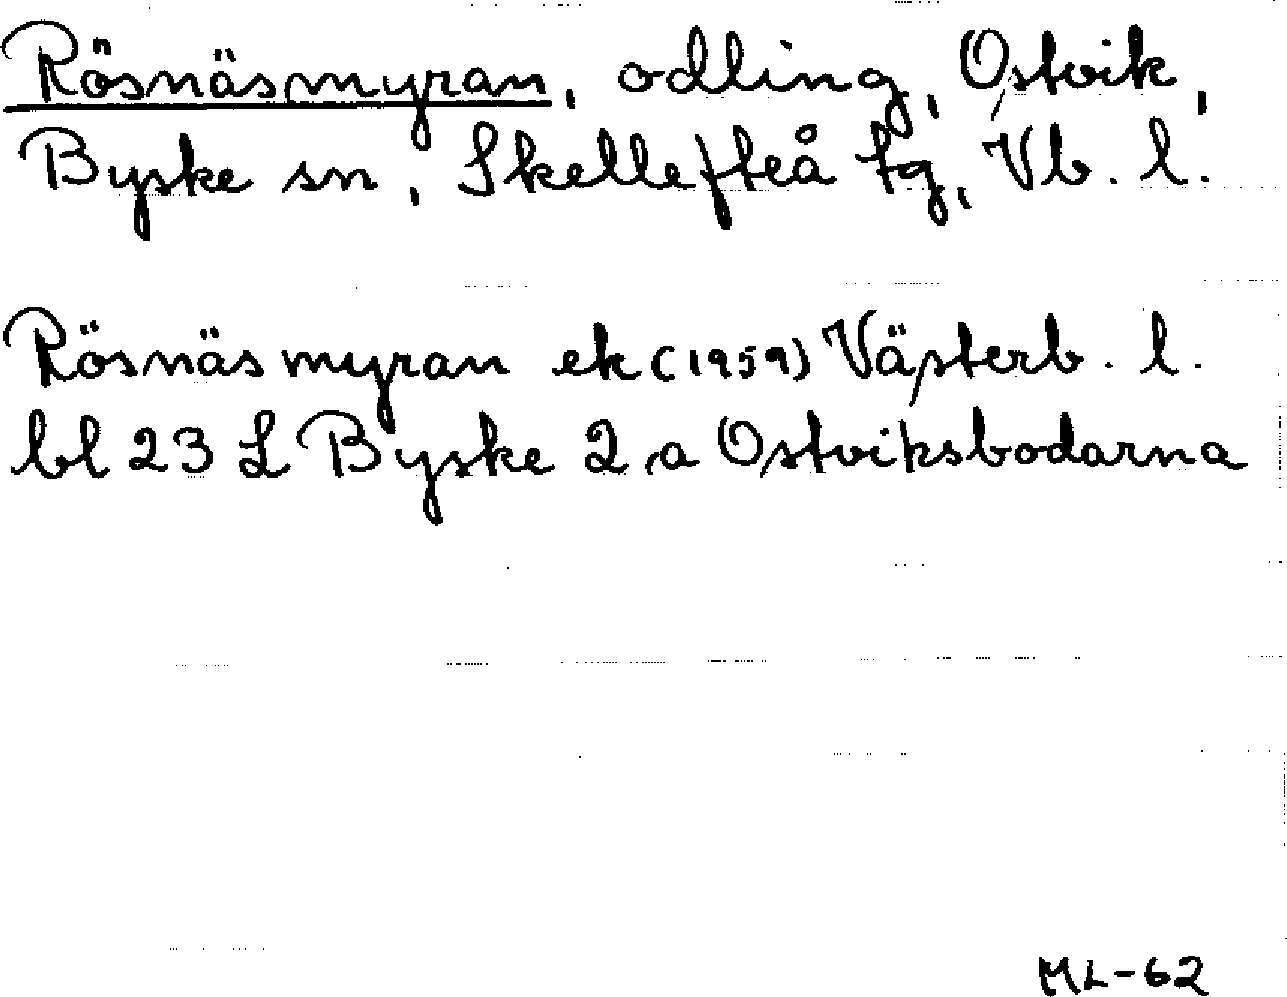 Rösnäsmyran, odling, Ostvik,
Byske sn, Skellefteå tg, Vb. l.
Rösnäsmyran ek (1959) Västerb. l.
bl 23 L Byske 2 a Ostviksbodarna
ML-62